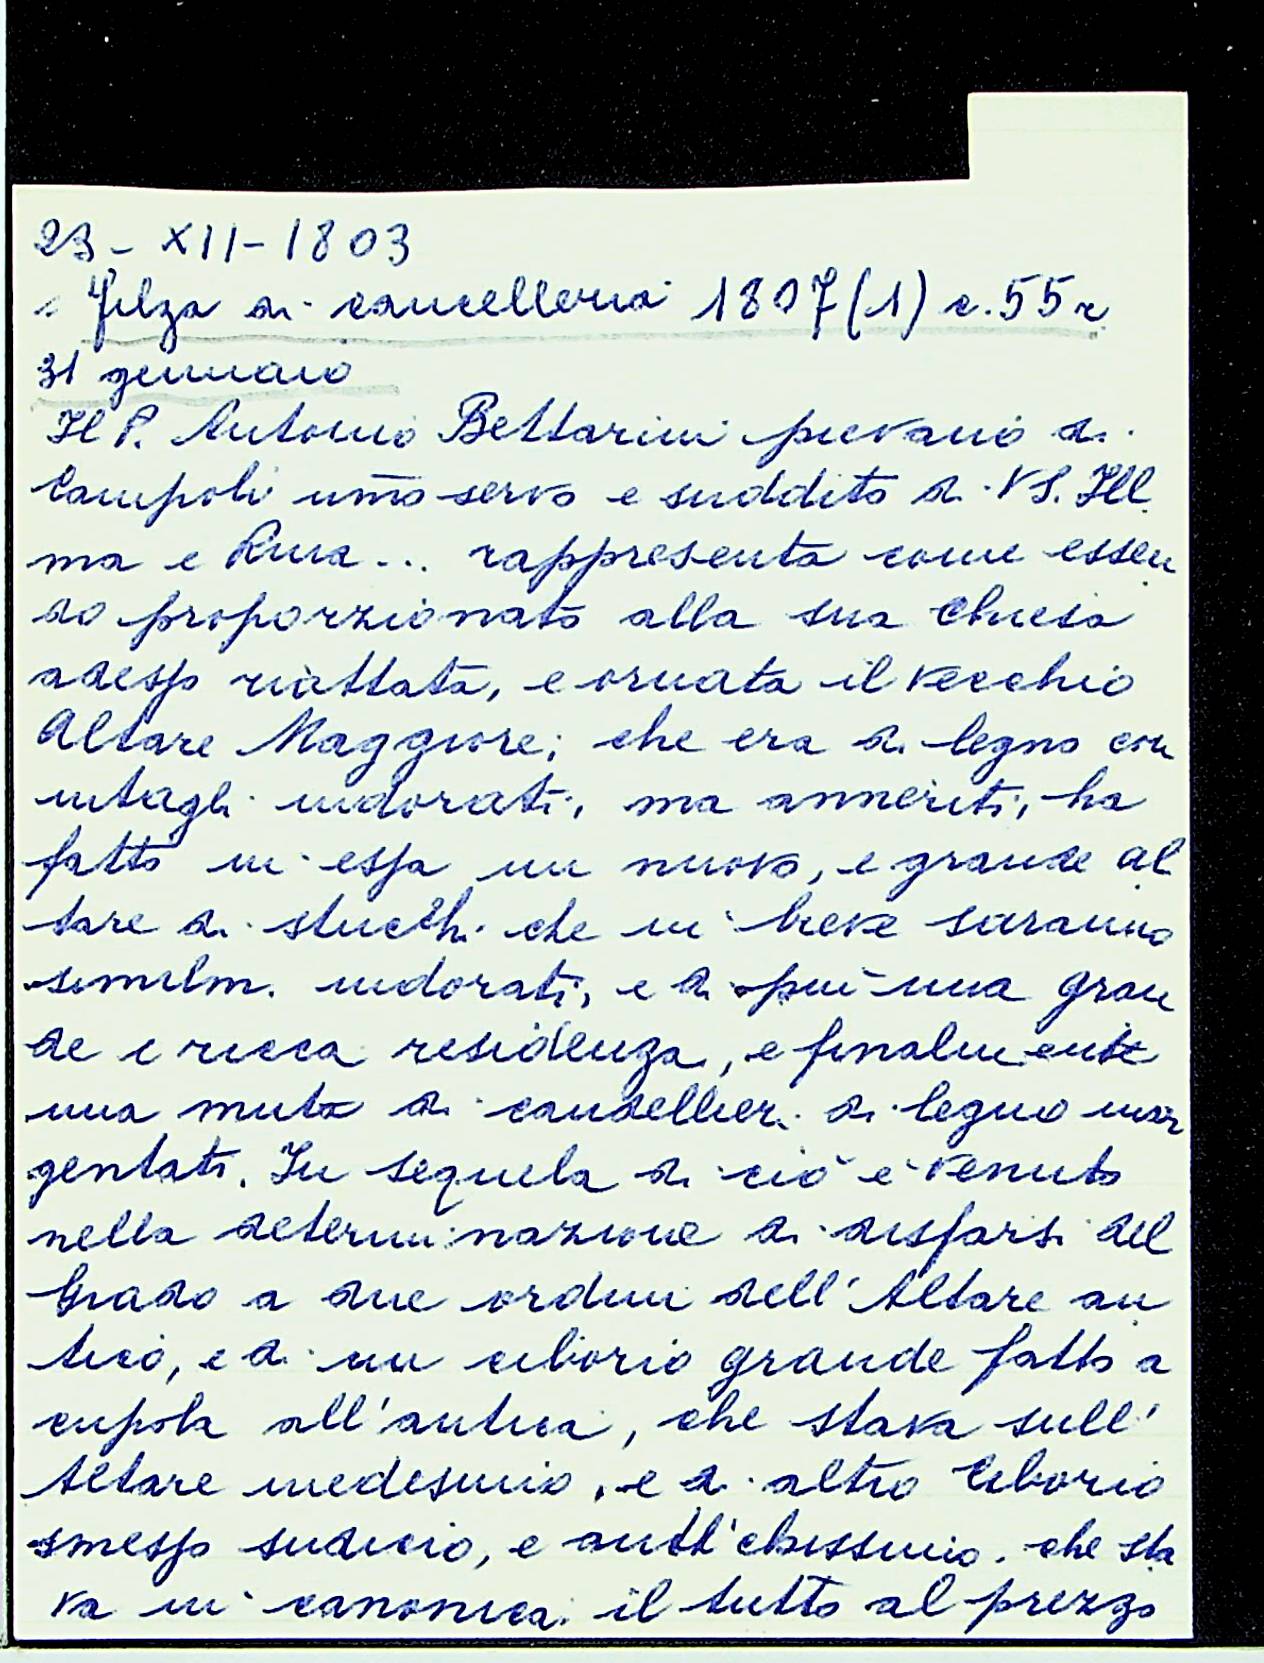 23-XII-1803
Filza di cancelleria 1807(1) c.55r
31 gennaio
Il P. Antonio Bettarini pievano di
Campoli um̃o servo e suddito di VS. Ill
ma e Rma... rappresenta come essen
do proporzionato alla sua Chiesa
adesso riattata, e ornata il vecchio
Altare Maggiore; che era di legno con
intagli indorati, ma anneriti, ha
fatto in essa un nuovo, e grande al
tare di stucchi che in breve saranno
similm. indorati, e di più una gran
de e ricca residenza, e finalmente
una muta di candellieri di legno inar
gentati. In sequela di ciò è venuto
nella determinazione di disfarsi del
Grado a due ordini dell'Altare an
tico, e di un ciborio grande fatto a
cupola all'antica, che stava sull'
Altare medesimo, e di altro Ciborio
smesso sudicio, e antichissimo. che sta
va in canonica. il tutto al prezzo